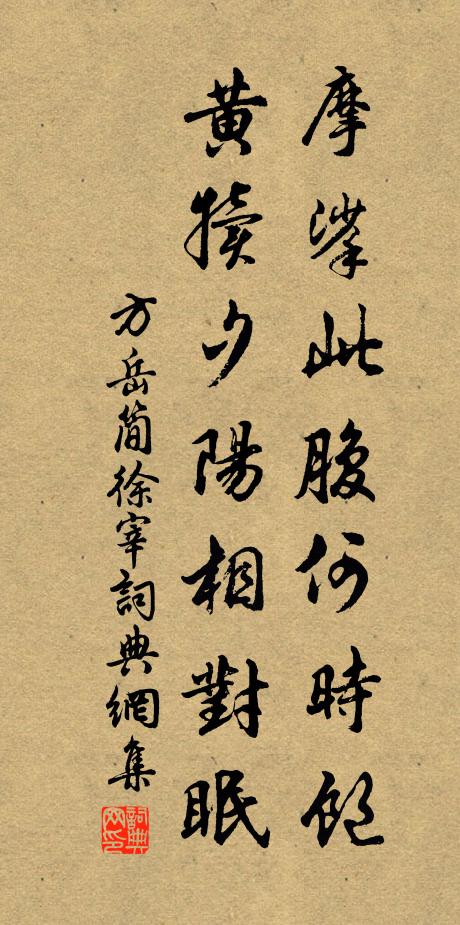 摩挲此腹何時飽
黃犢夕陽相對眠
方岳簡徐宰詞典網集
詞典網印